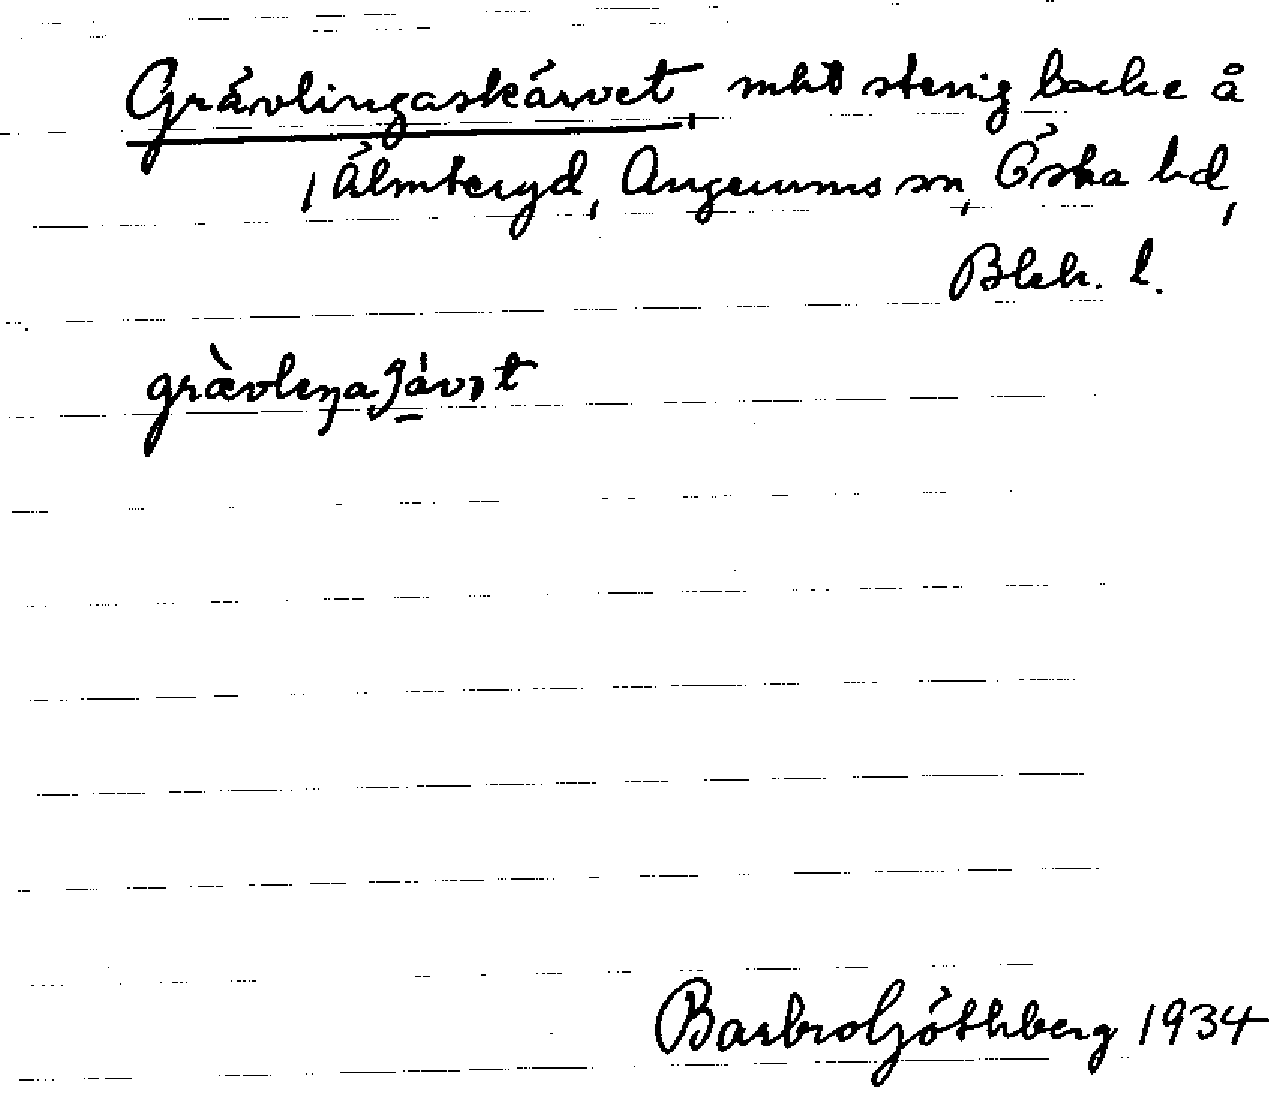 Grävlingaskärvet, mkt stenig backe å
1 Älmteryd, Augerums sn, Östra hd,
Blek. l.
grævleŋaʃärvət
Barbro Göthberg 1934